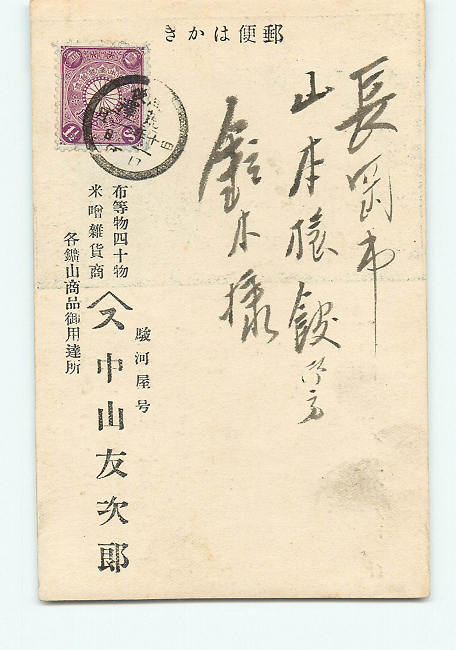 郵便はかき
長岡市
山本様
鈴木様
駿河屋号
中山友次郎
各鑛山商品御用達所
布等物四十物
米噌雜貨商
1½ Sn